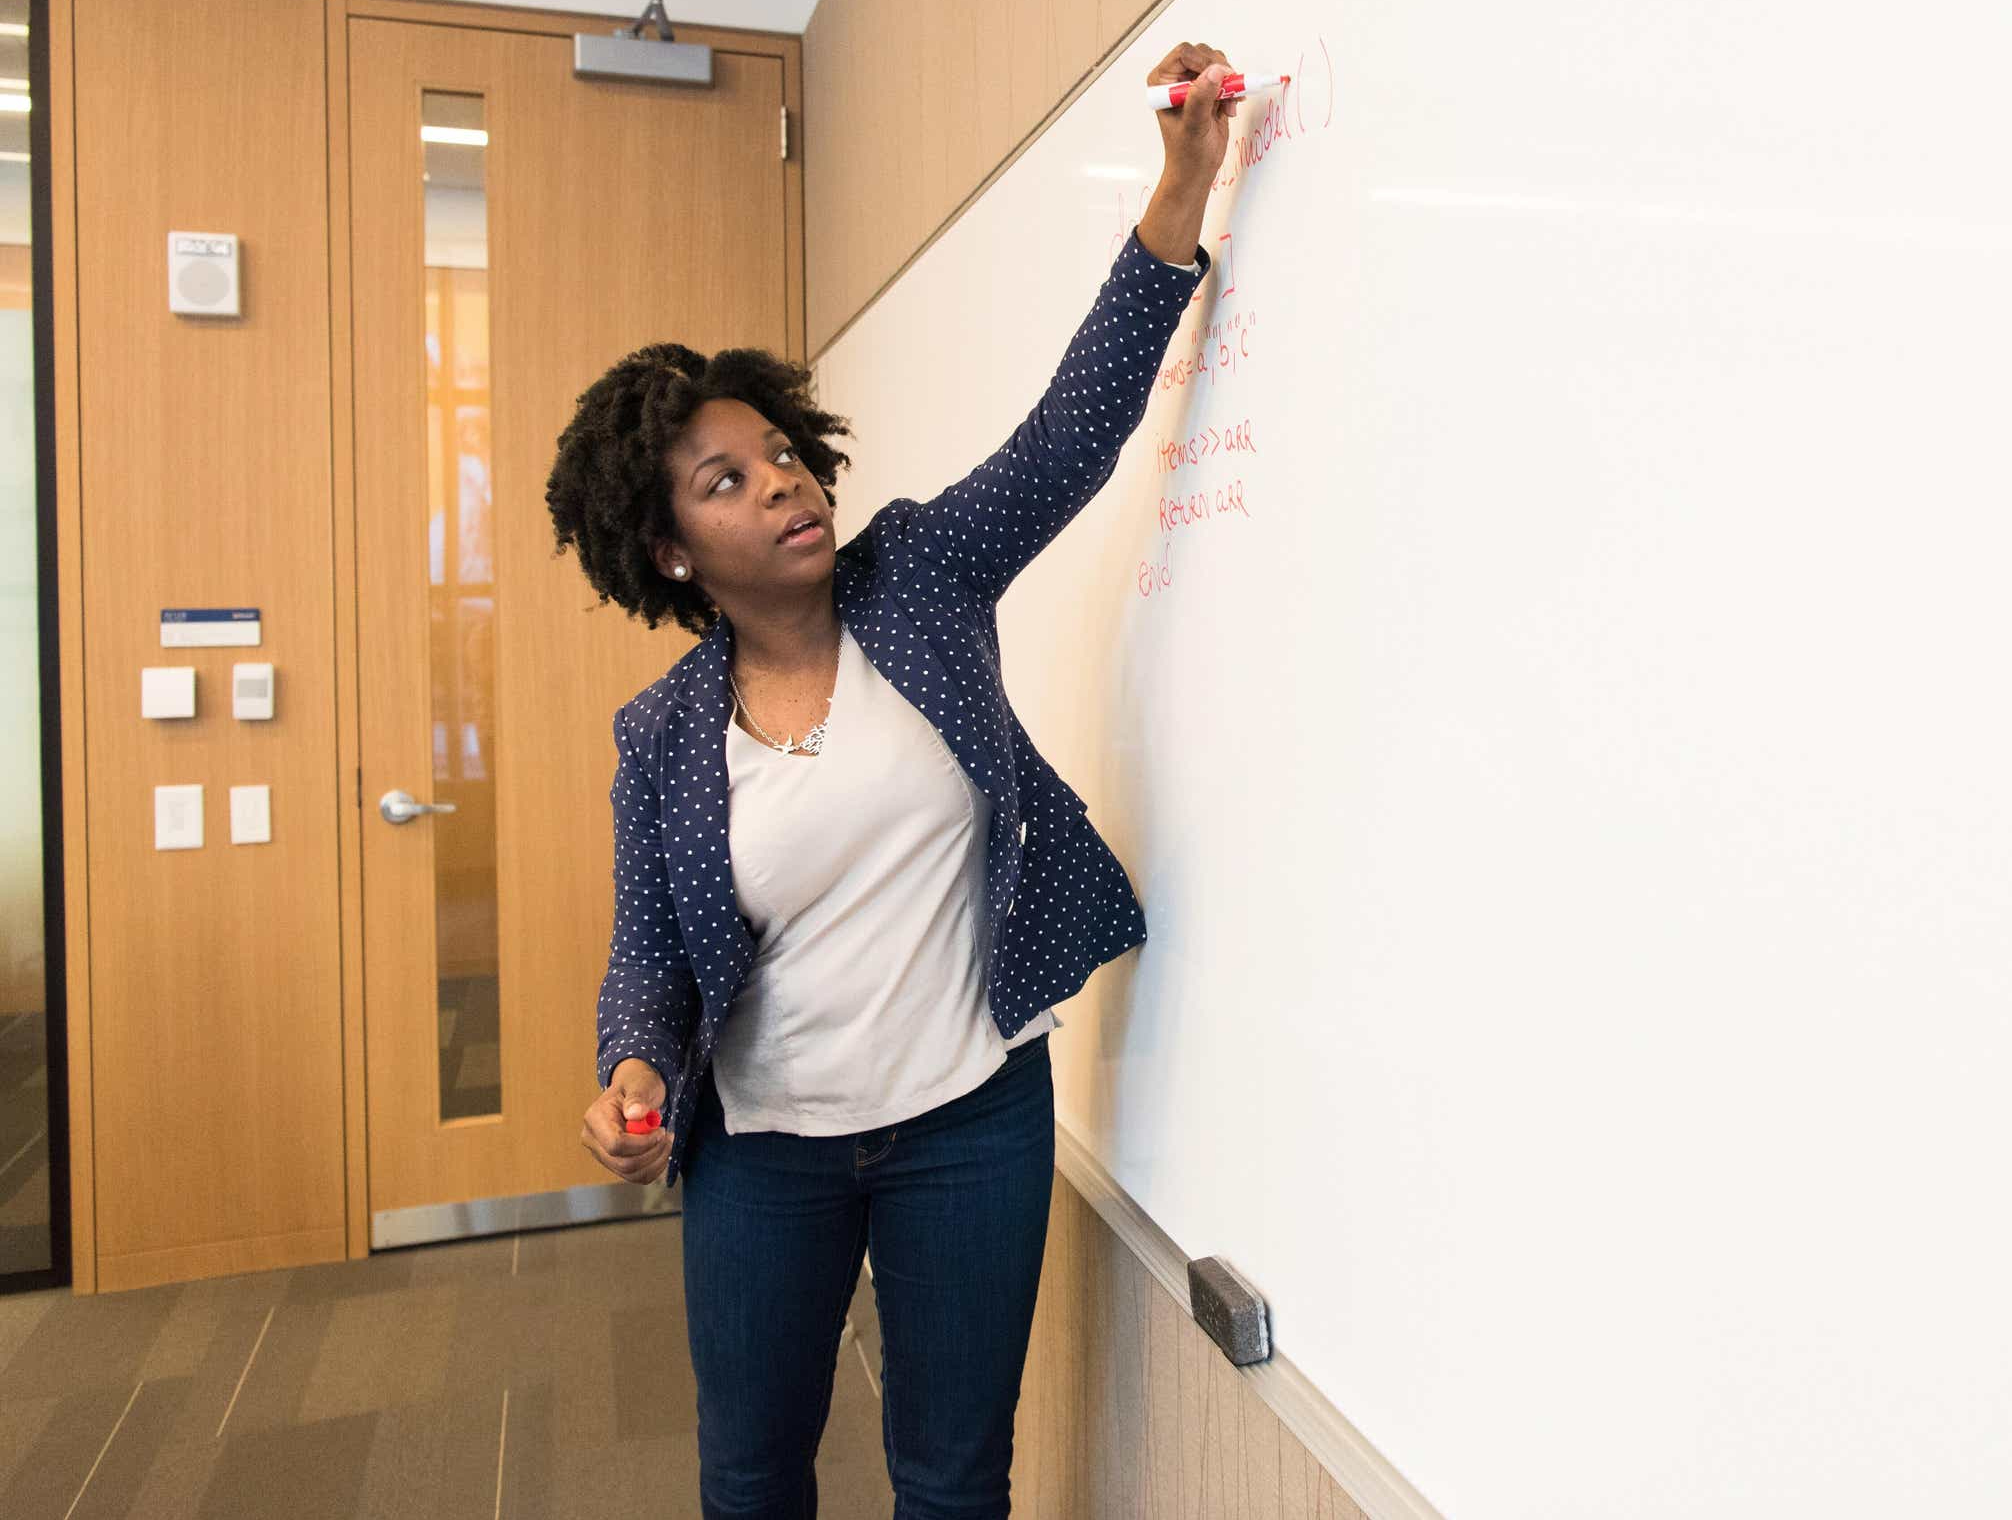 def model()
]
items="a","b","c"
items>>arr
return arr
end